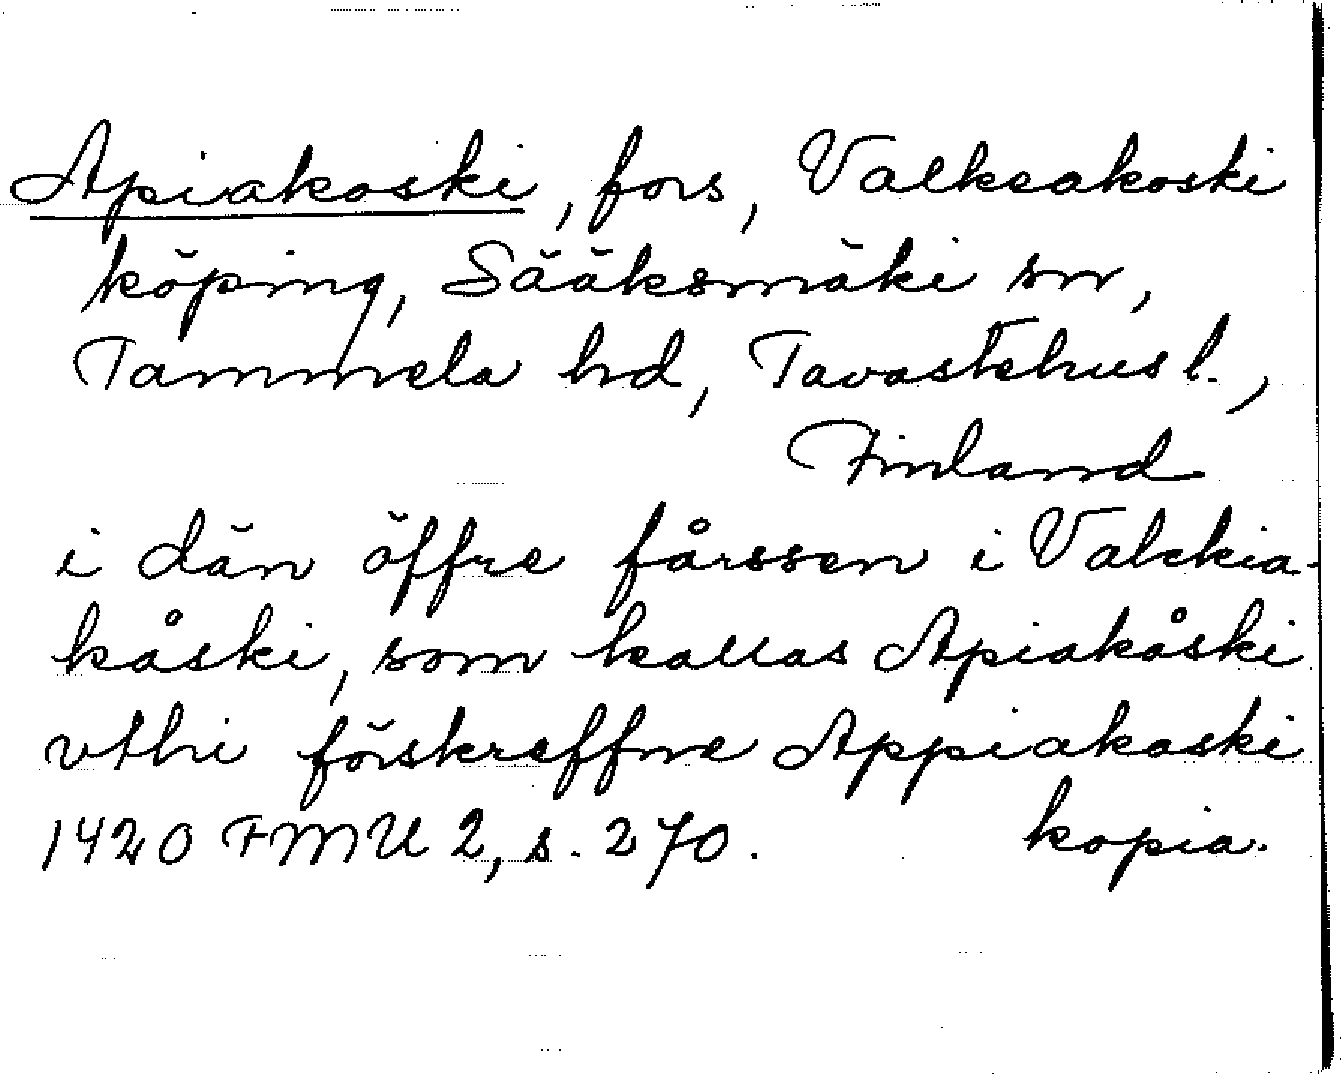 Apiakoski, fors, Valkeakoski
köping, Sääksmäki sn,
Tammela hd, Tavastehus l.,
Finland
i dän öffre fårssen i Valckia-
kåski, som kallas Apiakåski
vthi förskreffne Appiakoski
1420 FMU 2, s. 270. kopia.